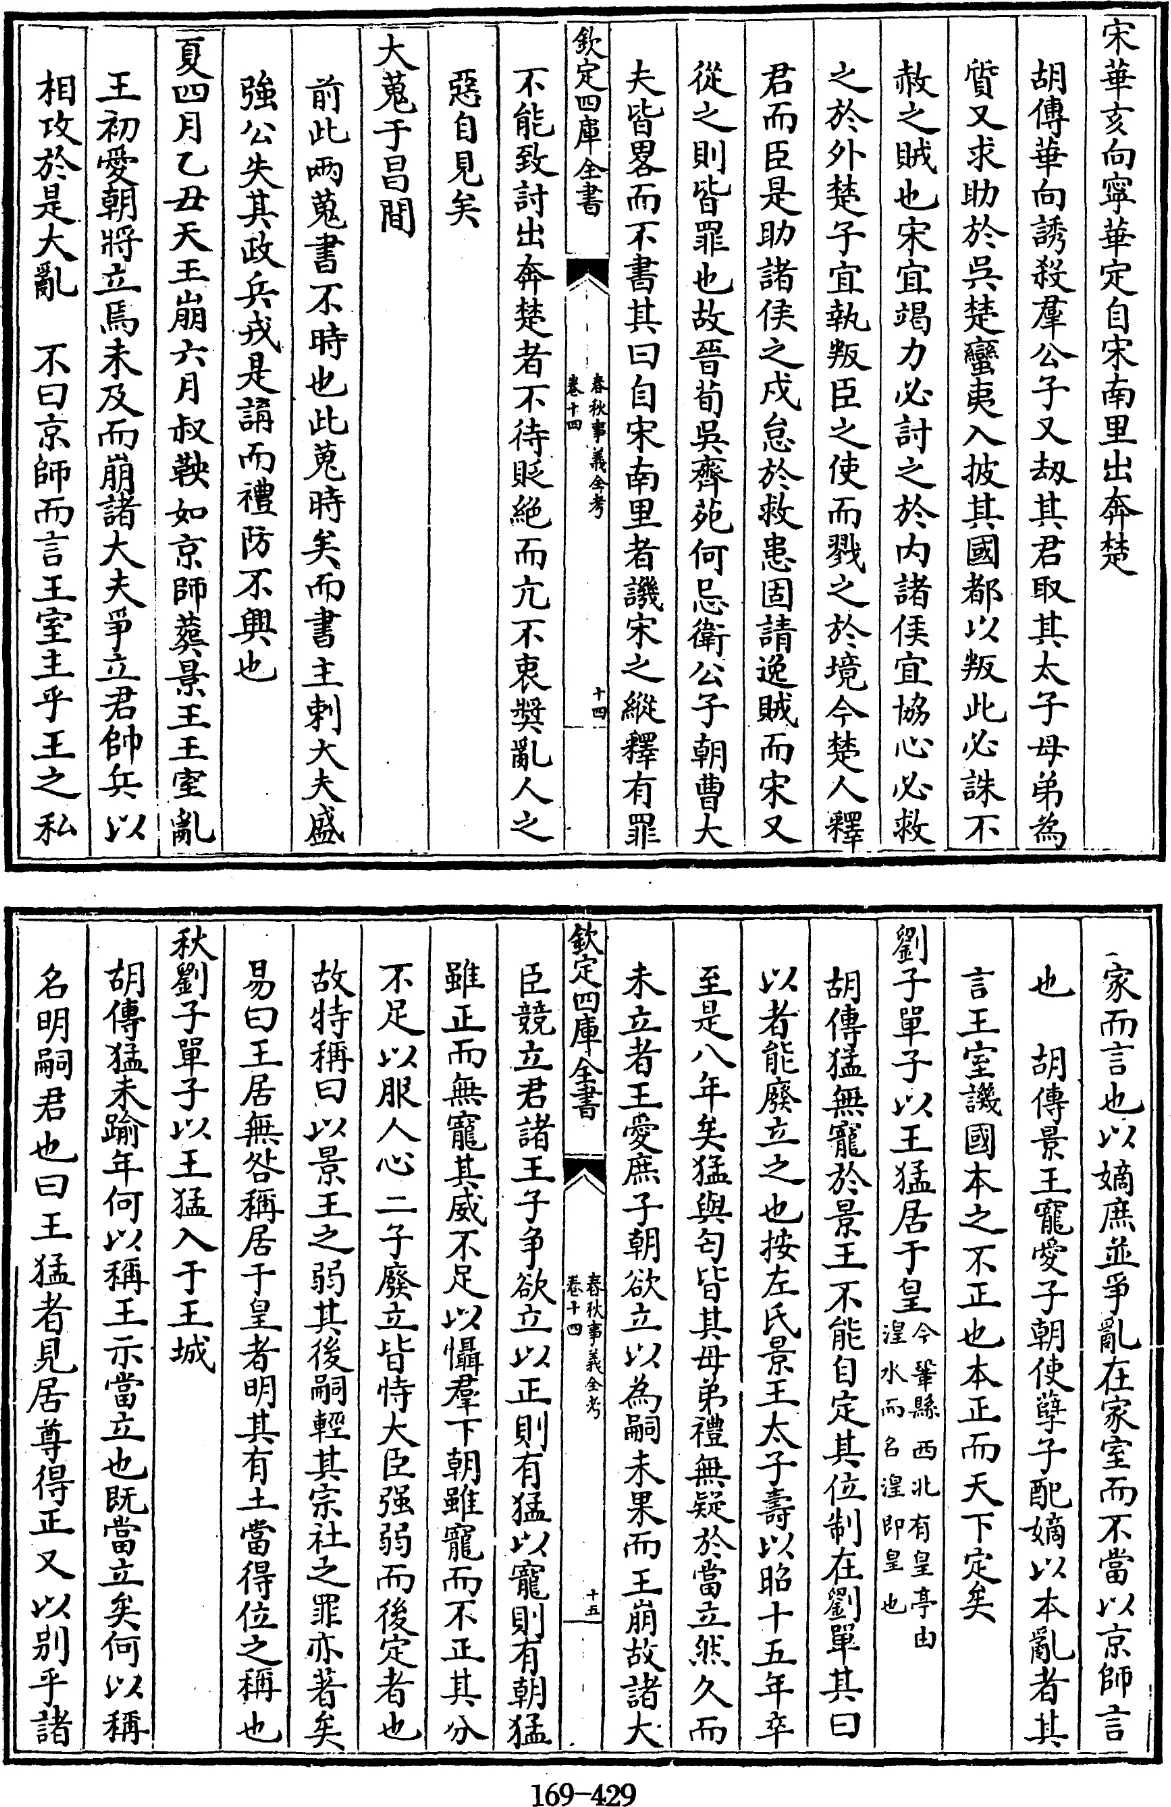 宋華亥向寧華定自宋南里出奔楚
胡傳華向誘殺羣公子又刼其君取其太子母弟為
質又求助於吳楚蠻夷入披其國都以叛此必誅不
赦之賊也宋宜竭力必討之於内諸侯宜協心必救
之於外楚子宜執叛臣之使而戮之於境今楚人釋
君而臣是助諸侯之戍怠於救患固請逸賊而宋又
從之則皆罪也故晉荀吳齊苑何忌衛公子朝曹大
夫皆畧而不書其曰自宋南里者譏宋之縱釋有罪
欽定四庫全書
春秋事義全考
卷十四
十四
不能致討出奔楚者不待貶絶而亢不衷奬亂人之
惡自見矣
大蒐于昌間
前此兩蒐書不時也此蒐時矣而書主刺大夫盛
強公失其政兵戎是講而禮防不興也
夏四月乙丑天王崩六月叔鞅如京師葬景王王室亂
王初愛朝將立焉未及而崩諸大夫爭立君帥兵以
相攻於是大亂　不曰京師而言王室主乎王之私
一家而言也以嫡庶並爭亂在家室而不當以京師言
也　胡傳景王寵愛子朝使孽子配嫡以本亂者其
言王室譏國本之不正也本正而天下定矣
劉子單子以王猛居于皇今鞏縣西北有皇亭由
湟水而名湟即皇也
胡傳猛無寵於景王不能自定其位制在劉單其曰
以者能廢立之也按左氏景王太子壽以昭十五年卒
至是八年矣猛與匄皆其母弟禮無疑於當立然久而
未立者王愛庶子朝欲立以為嗣未果而王崩故諸大
欽定四庫全書
春秋事義全考
卷十四
十五
臣競立君諸王子争欲立以正則有猛以寵則有朝猛
雖正而無寵其威不足以懾羣下朝雖寵而不正其分
不足以服人心二子廢立皆恃大臣强弱而後定者也
故特稱曰以景王之弱其後嗣輕其宗社之罪亦著矣
易曰王居無咎稱居于皇者明其有土當得位之稱也
秋劉子單子以王猛入于王城
胡傳猛未踰年何以稱王示當立也既當立矣何以稱
名明嗣君也曰王猛者見居尊得正又以别乎諸
169-429